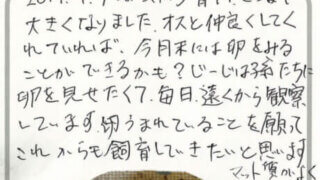 大きくなりました。オスと仲良くしてく
れていれば、今月末には卵をみる
ことができるかも?じーじは孫たちに
卵を見せたくて、毎日、遠くから観察
しています。卵うまれていることを願って
これからも飼育していきたいと思います
マット 質が よく